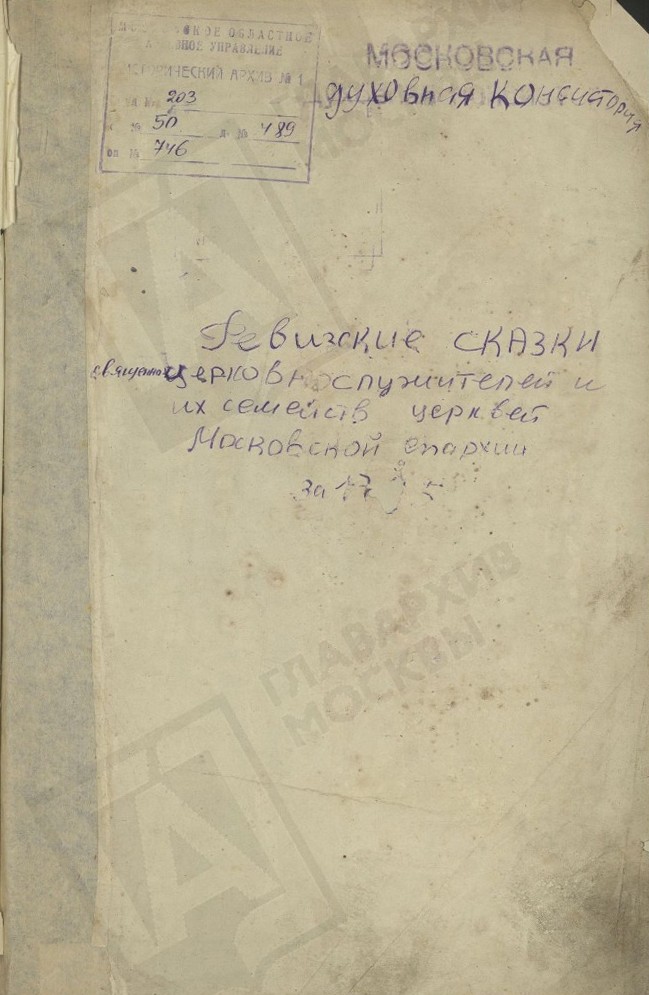 МОСКОВСКОЕ ОБЛАСТНОЕ
АРХИВНОЕ УПРАВЛЕНИЕ
ИСТОРИЧЕСКИЙ АРХИВ № 1
203
№ 50 д. № 489
оп № 746
МОСКОВСКАЯ
духовная Консистория
Ревизские СКАЗКИ
священно церковнослужителей и
их семейств церквей
Московской епархии
за 17
ГЛАВАРХИВ
МОСКВЫ